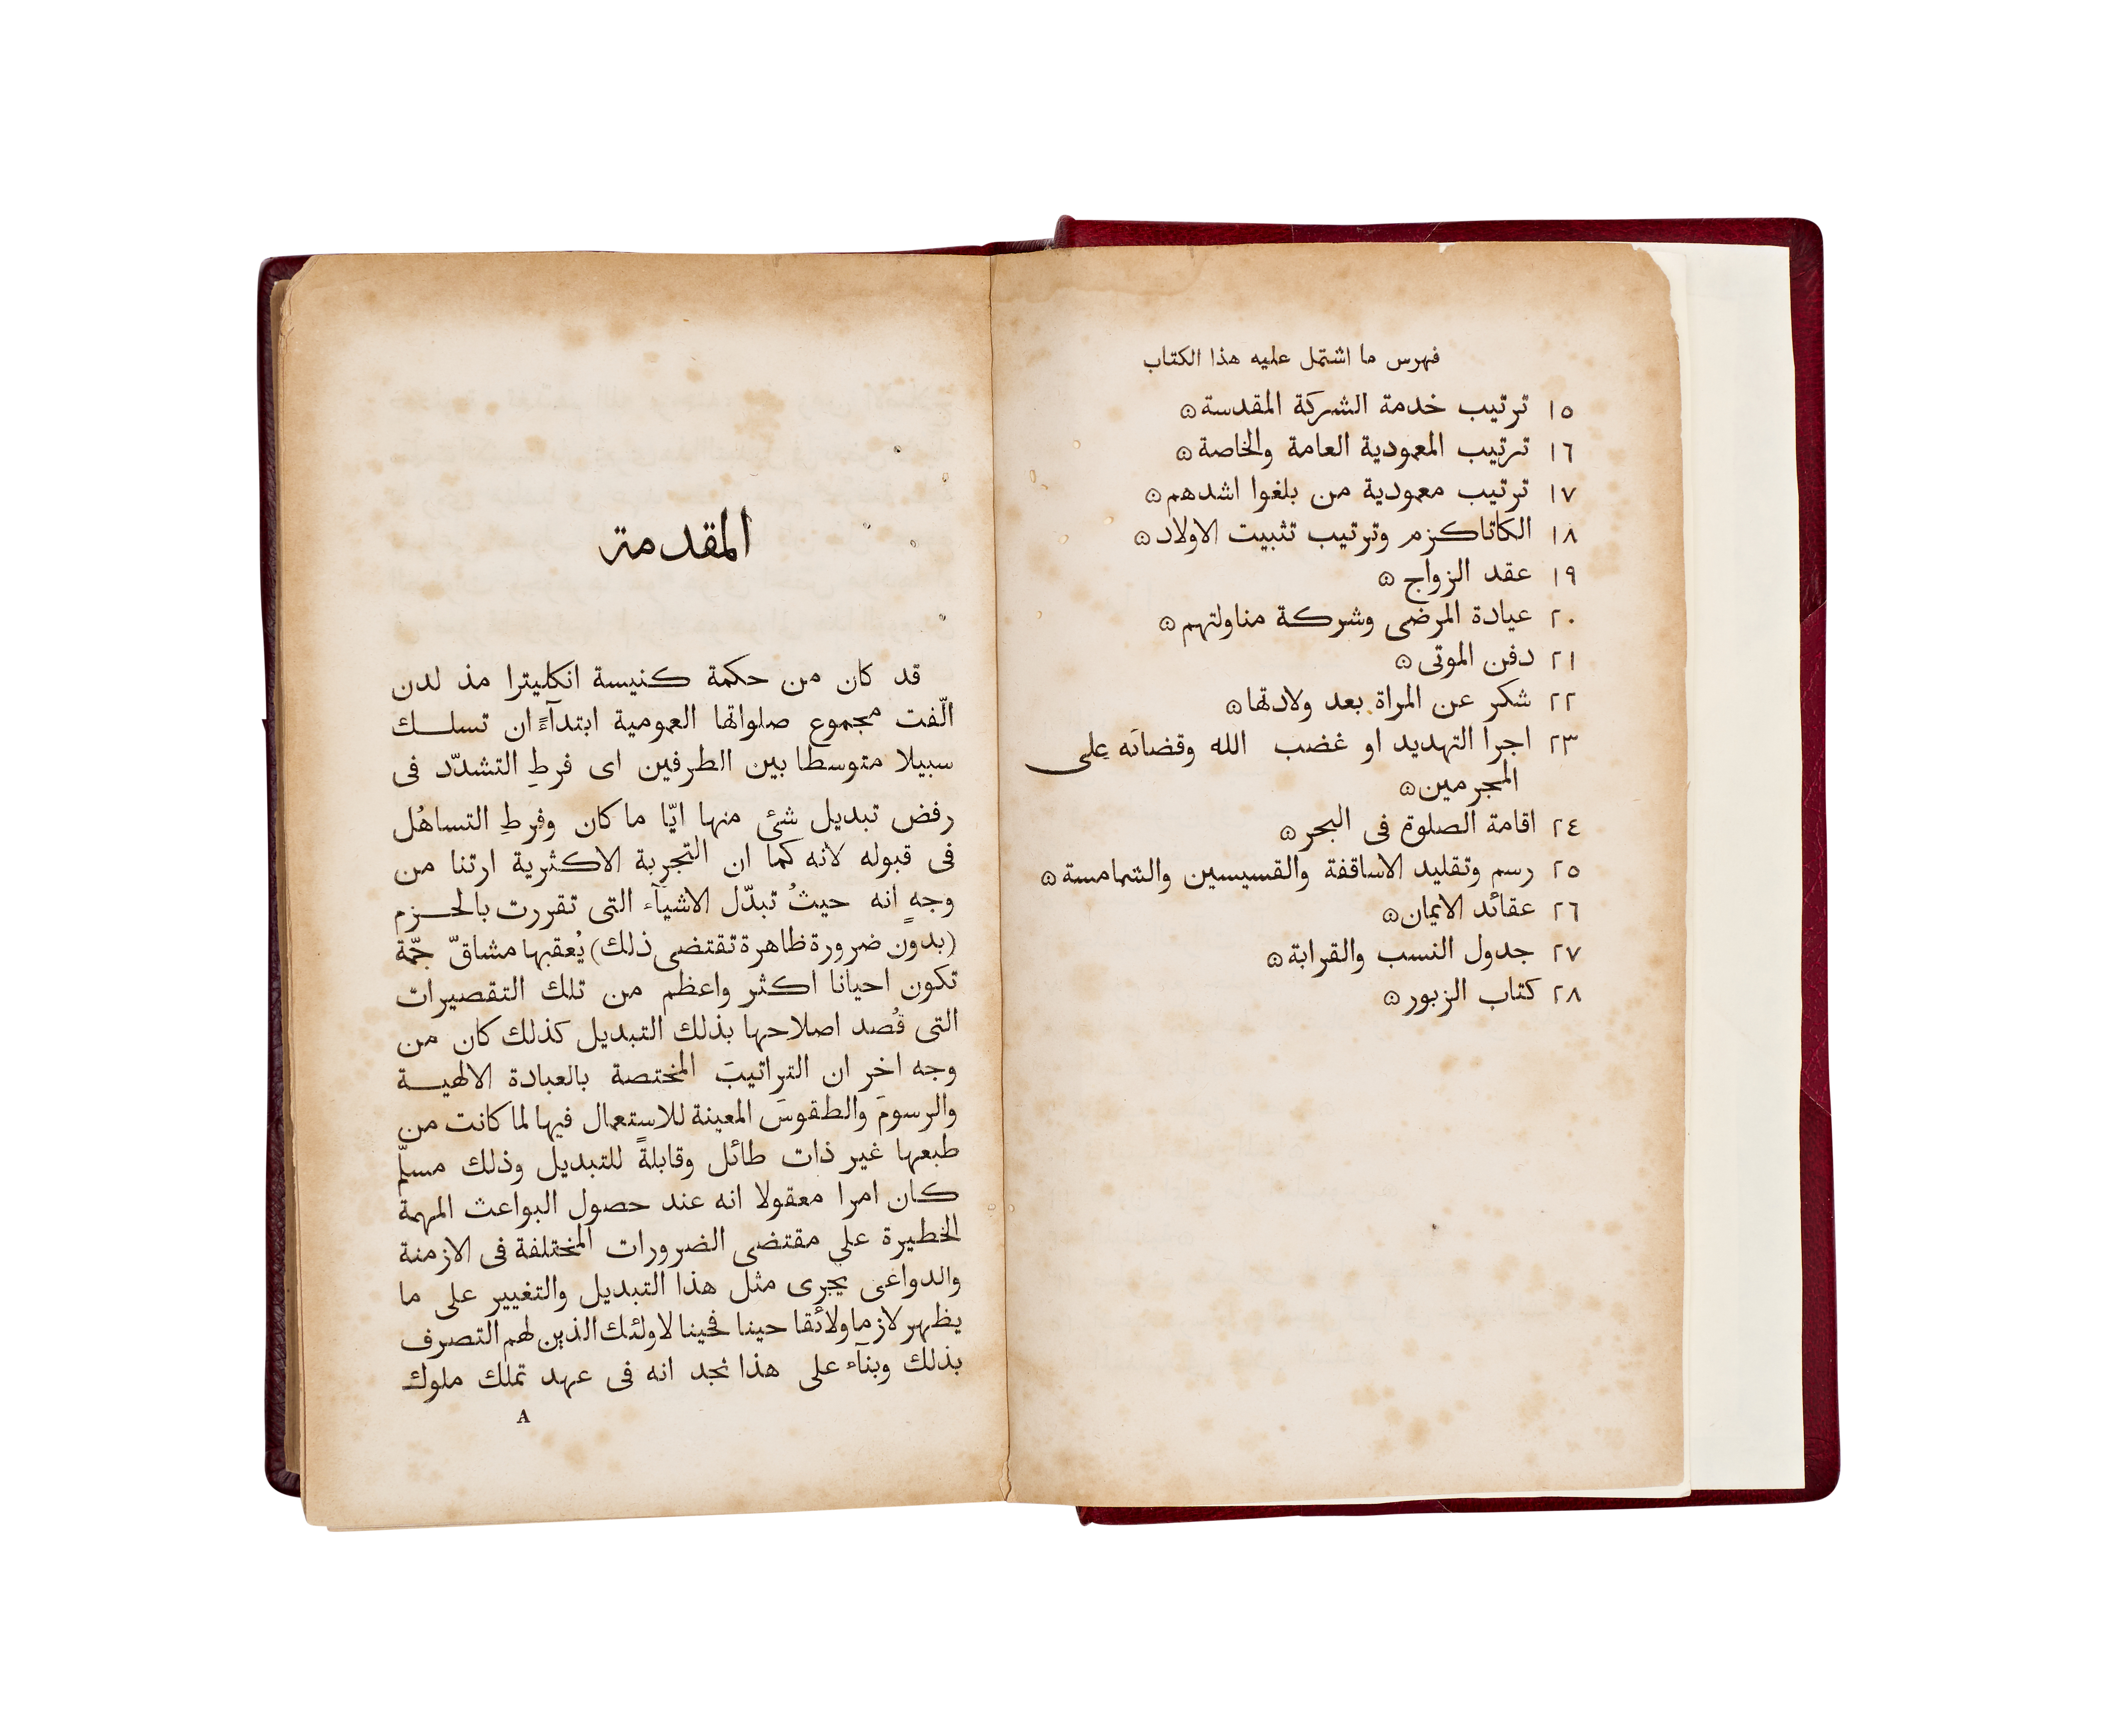 فهرس ما اشتمل عليه هذا الكتاب
١٥ ترتيب خدمة الشركة المقدسة ۝
١٦ ترتيب المعمودية العامة والخاصة ۝
١٧ ترتيب معمودية من بلغوا اشدهم ۝
١٨ الكاتاكزم وترتيب تثبيت الاولاد ۝
١٩ عقد الزواج ۝
٢٠ عيادة المرضى وشركة مناولتهم ۝
٢١ دفن الموتى ۝
٢٢ شكر عن المراة بعد ولادتها ۝
٢٣ اجرا التهديد او غضب الله وقضائه على
المجرمين ۝
٢٤ اقامة الصلوة فى البحر ۝
٢٥ رسم وتقليد الاساقفة والقسيسين والشمامسة ۝
٢٦ عقائد الايمان ۝
٢٧ جدول النسب والقرابة ۝
٢٨ كتاب الزبور ۝
المقدمة
قد كان من حكمة كنيسة انكليترا مذ لدن
الّفت مجموع صلواتها العمومية ابتدآءً ان تسلك
سبيلا متوسطا بين الطرفين اى فرطِ التشدّد فى
رفض تبديل شئ منها ايّا ما كان وفرطِ التساهُل
فى قبوله لانه كما ان التجربة الاكثرية ارتنا من
وجهٍ انه حيثُ تبدّل الاشيآء التى تقررت بالحزم
(بدون ضرورة ظاهرة تقتضى ذلك) يُعقبها مشاقّ جمّة
تكون احيانا اكثر واعظم من تلك التقصيرات
التى قُصد اصلاحها بذلك التبديل كذلك كان من
وجه اخر ان التراتيبَ المختصة بالعبادة الالهية
والرسومَ والطقوسَ المعينة للاستعمال فيها لما كانت من
طبعها غير ذات طائل وقابلةً للتبديل وذلك مسلّم
كان امرا معقولا انه عند حصول البواعث المهمة
الخطيرة على مقتضى الضرورات المختلفة فى الازمنة
والدواعى يجرى مثل هذا التبديل والتغيير على ما
يظهر لازما ولائقا حينا فحينا لاولئك الذين لهم التصرف
بذلك وبنآء على هذا نجد انه فى عهد تملك ملوك
A